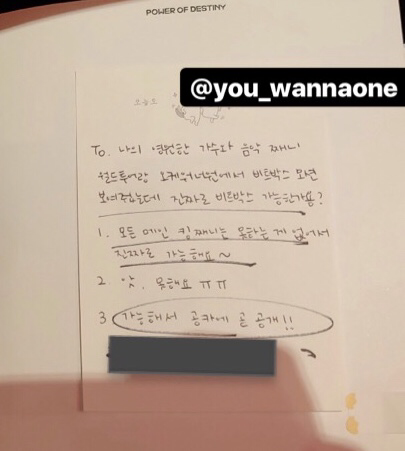 POWER OF DESTINY
@you_wannaone
오늘은
To. 나의 영원한 가수와 음악 째니
월드투어랑 오케워너원에서 비트박스 모션
보여주셨는데 진짜로 비트박스 가능한가용?
1. 모든 메인 킹째니는 못하는 게 없어서
진짜로 가능해요~
2. 앗, 못해요 ㅠㅠ
3 가능해서 공카에 곧 공개!!